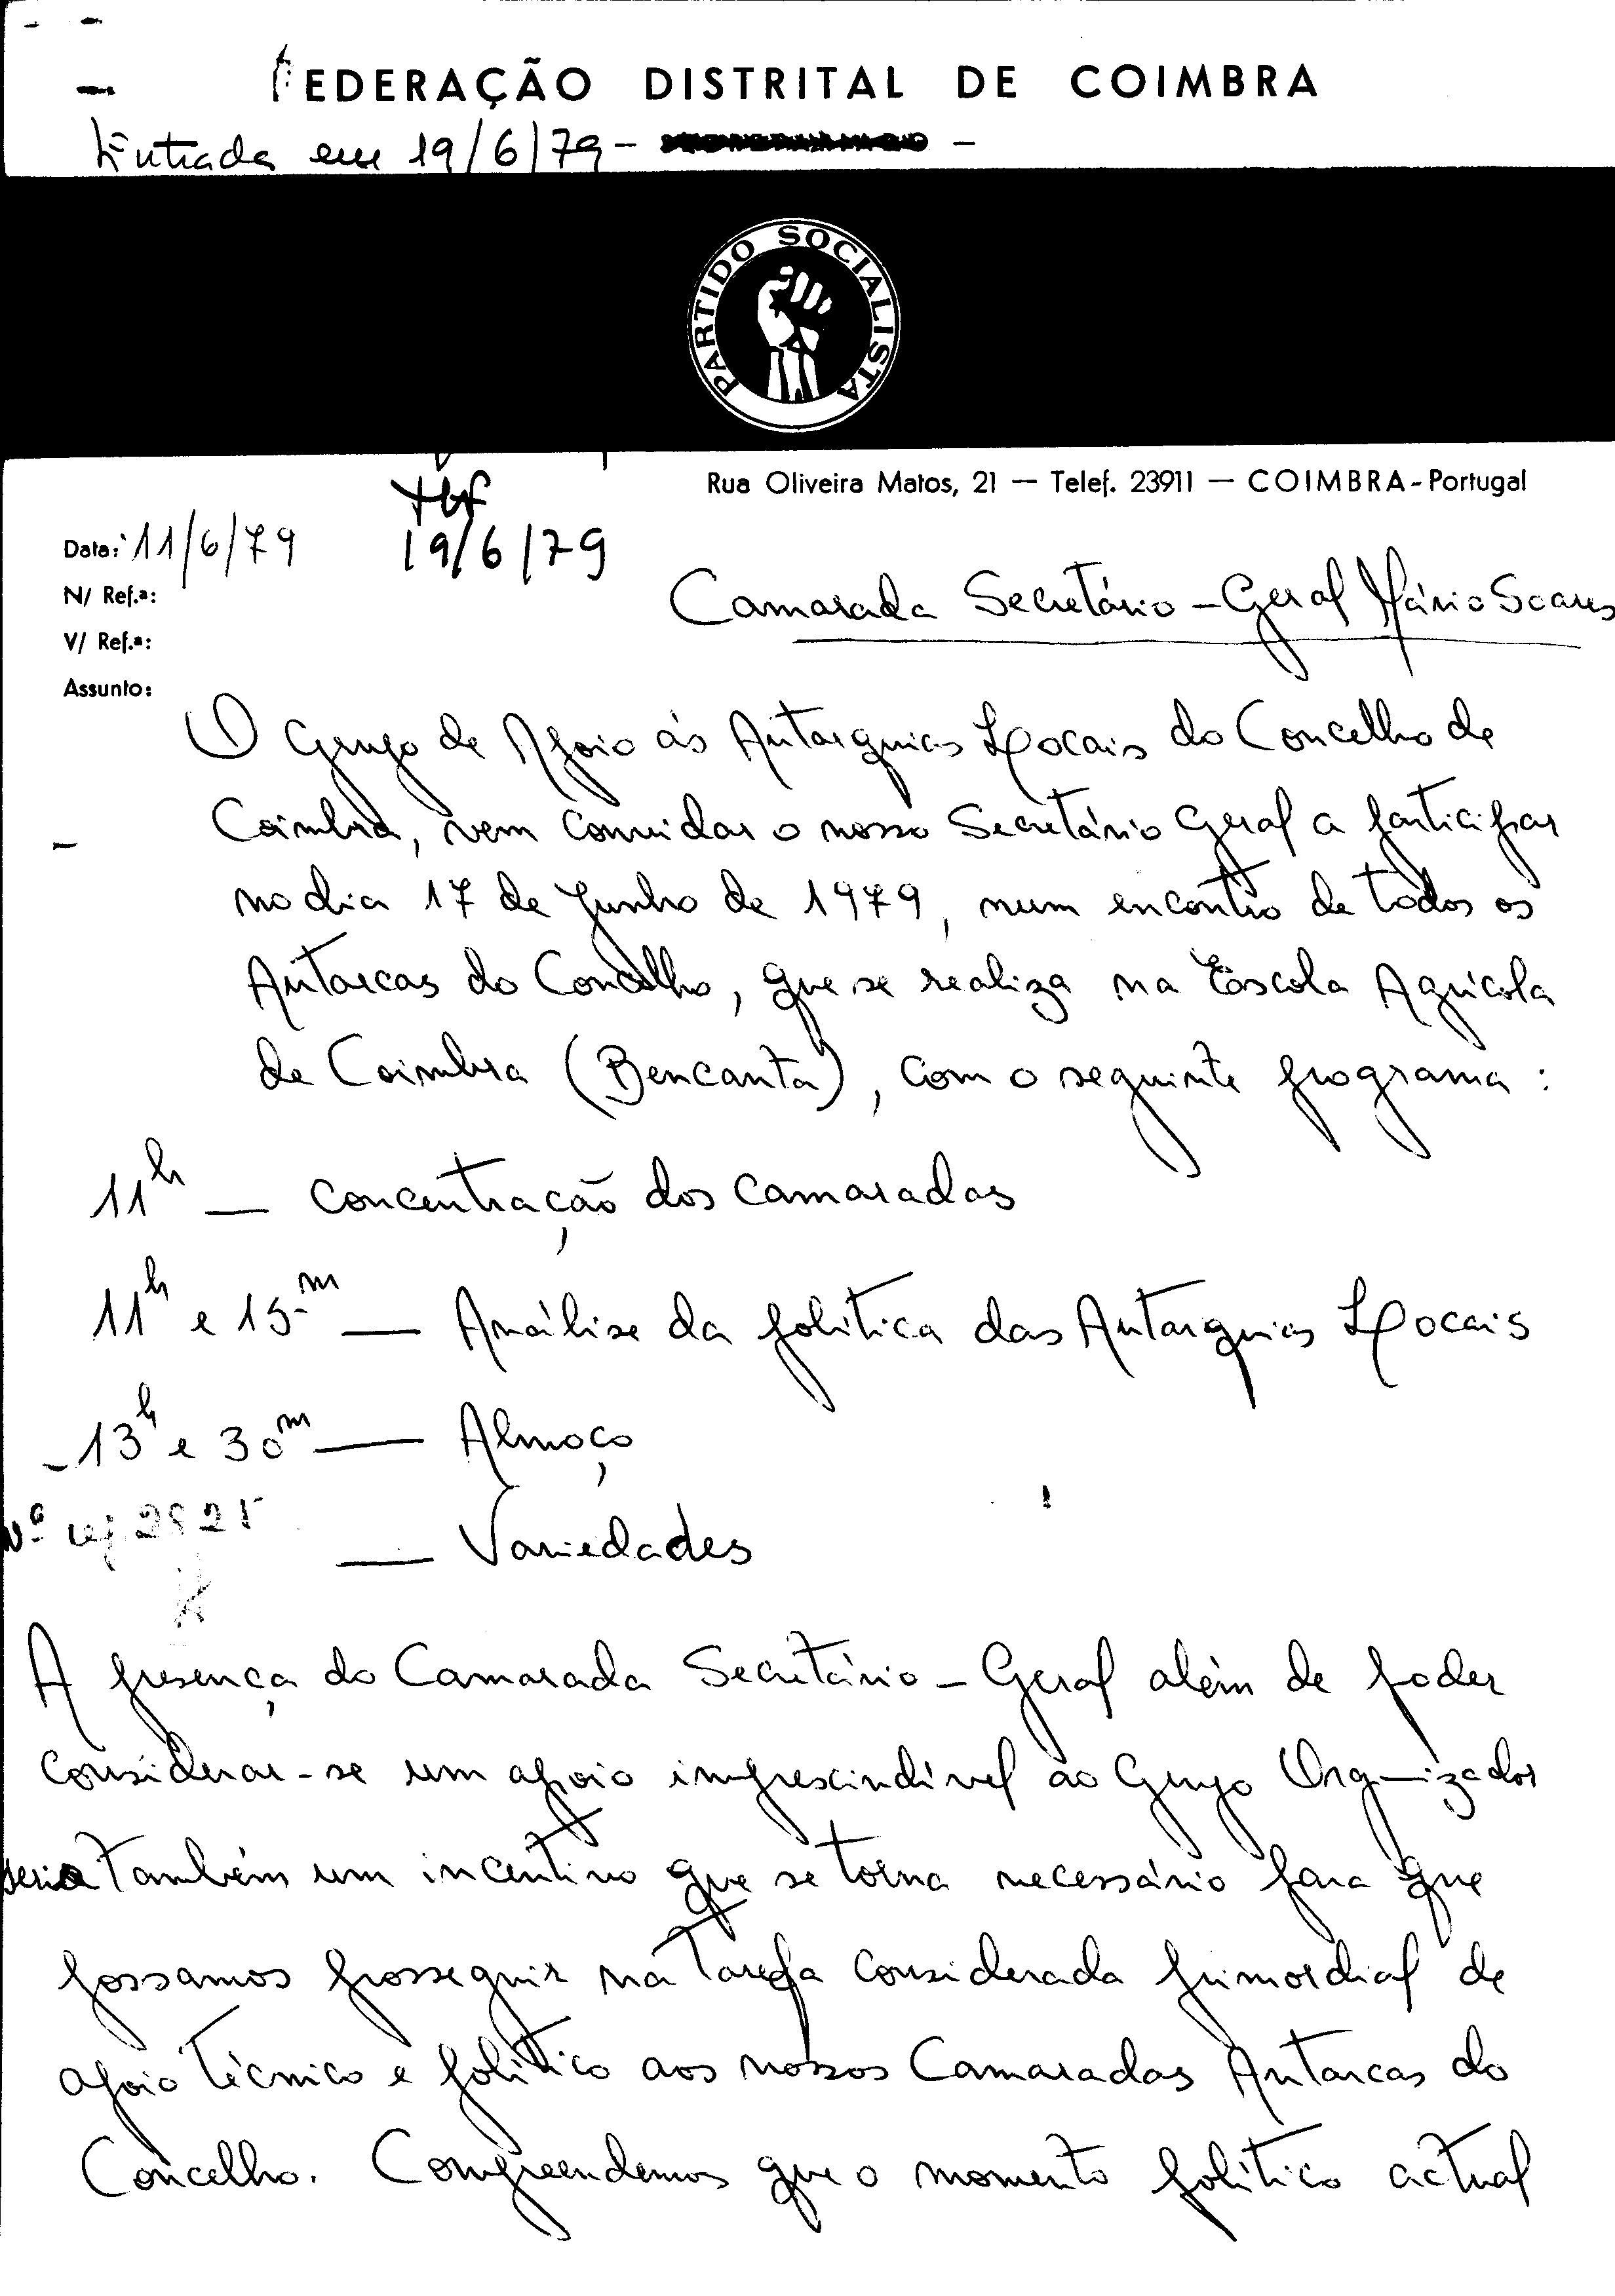 FEDERAÇÃO DISTRITAL DE COIMBRA
Entrada em 19/6/79 -
PARTIDO SOCIALISTA
Rua Oliveira Matos, 21 — Telef. 23911 — COIMBRA - Portugal
19/6/79
Data: 11/6/79
N/ Ref.ª:
V/ Ref.ª:
Assunto:
Camarada Secretário - Geral Mário Soares
O Grupo de Apoio às Autarquias Locais do Concelho de
Coimbra, vem convidar o nosso Secretário Geral a participar
no dia 17 de Junho de 1979, num encontro de todos os
Autarcas do Concelho, que se realiza na Escola Agrícola
de Coimbra (Bencanta), com o seguinte programa:
11h — Concentração dos camaradas
11h e 15m — Análise da política das Autarquias Locais
- 13h e 30m — Almoço
— Variedades
A presença do Camarada Secretário - Geral além de poder
considerar-se um apoio imprescindível ao Grupo Organizador
seria também um incentivo que se torna necessário para que
possamos prosseguir na tarefa considerada primordial de
apoio técnico e político aos nossos Camaradas Autarcas do
Concelho. Compreendemos que o momento político actual